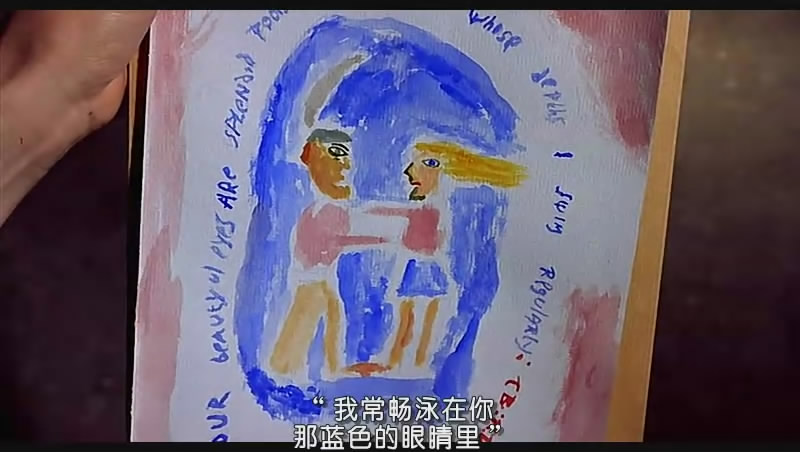 OUR beautyful eyes ARE SPLENDID
whose I swim REgulARly:
“ 我常畅泳在你
那蓝色的眼睛里 ”